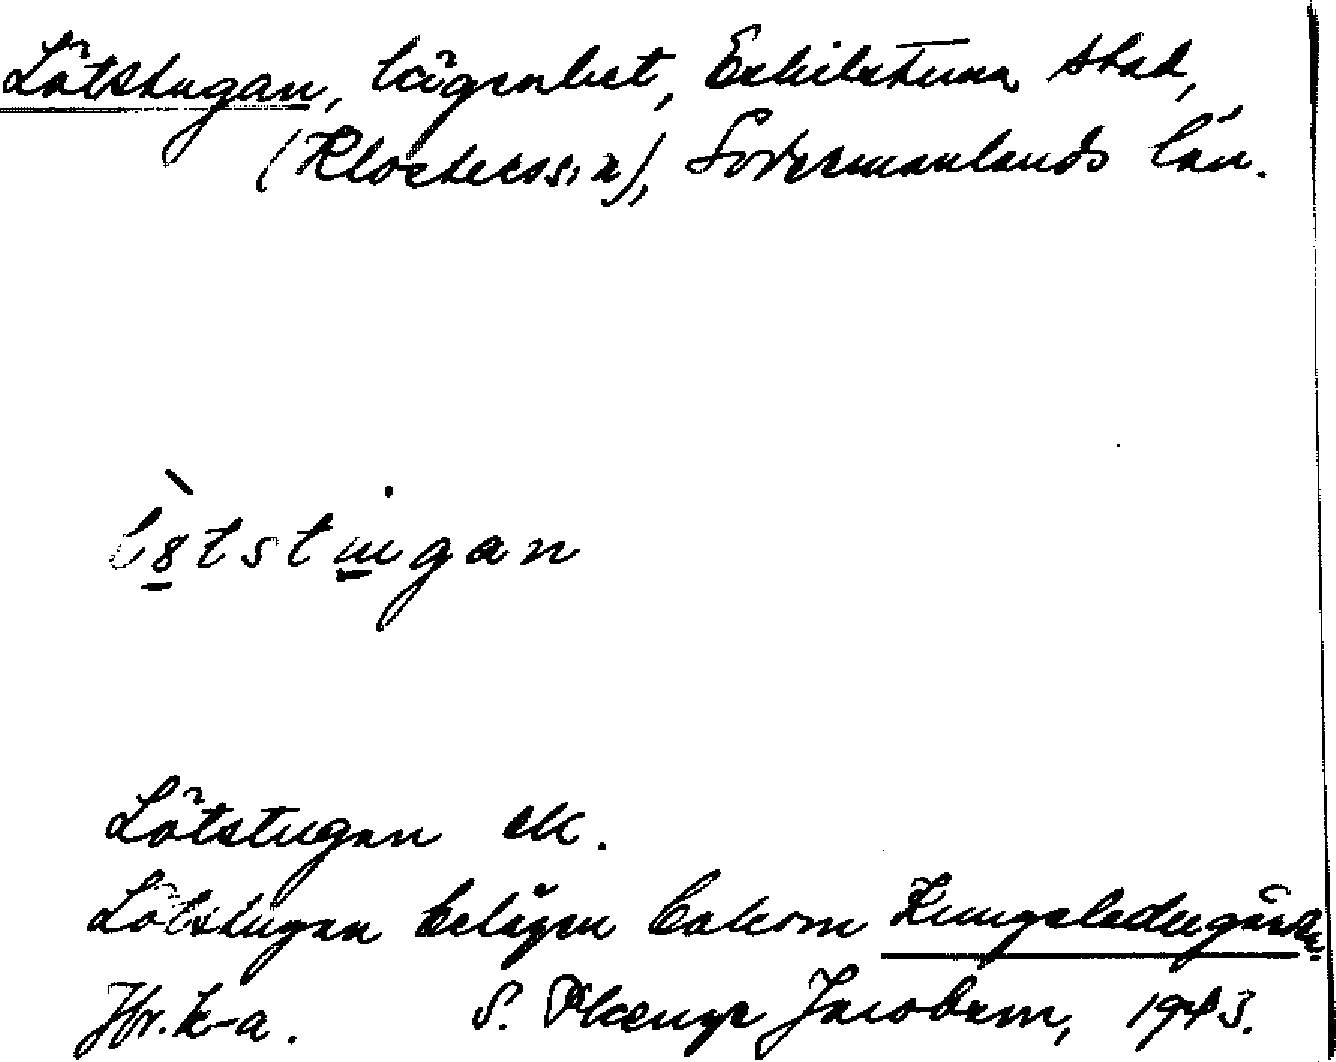 Lötstugan, lägenhet, Eskilstuna stad,
(Klosters sn), Södermanlands län.
lötstugan
Lötstugan ek.
Lötstugan belägen bakom Kungsladugården
Jfr. k-a. S. Plænge Jacobson, 1943.